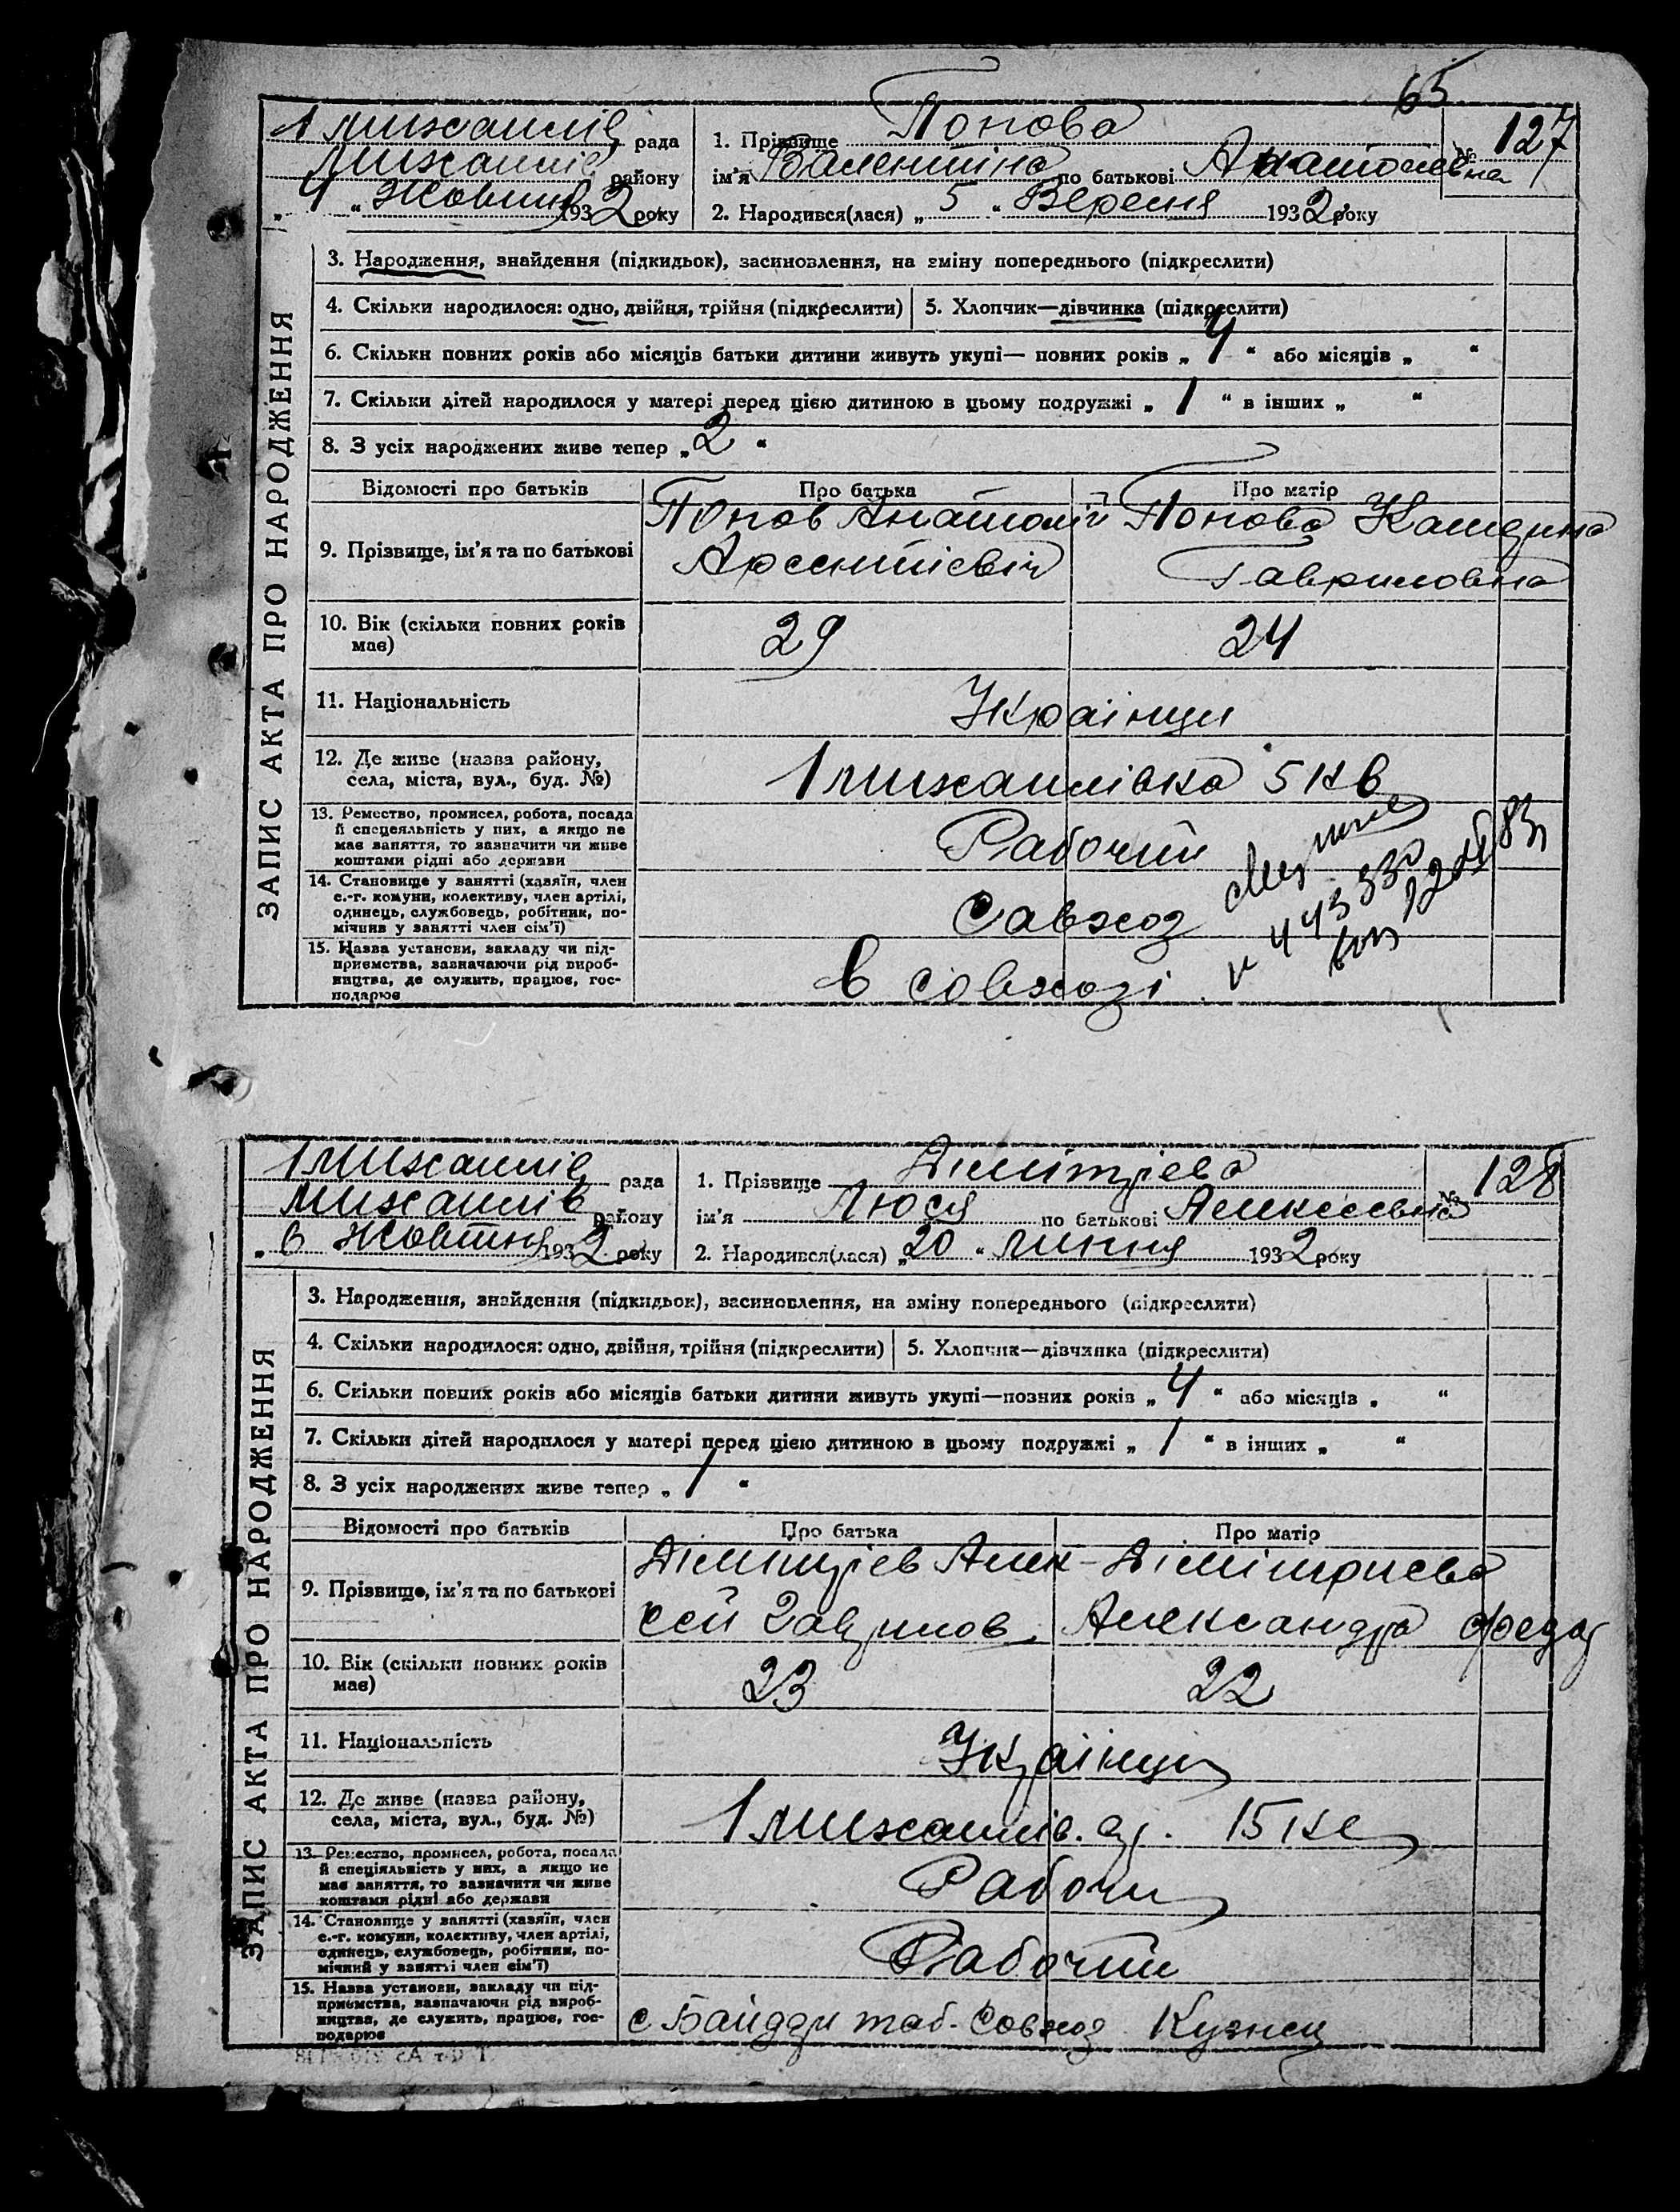 65
1 Михайлів рада
Михайлів району
„ 4 “ Жовтня 1932 року
1. Прізвище Попова № 127
ім'я Валентіна по батькові Анатолевна
2. Народився(лася) „ 5 “ Вересня 1932 року
ЗАПИС АКТА ПРО НАРОДЖЕННЯ
3. Народження, знайдення (підкидьок), засиновлення, на зміну попереднього (підкреслити)
4. Скільки народилося: одно, двійня, трійня (підкреслити) 5. Хлопчик—дівчинка (підкреслити)
6. Скільки повних років або місяців батьки дитини живуть укупі— повних років „ 4 “ або місяців „ “
7. Скільки дітей народилося у матері перед цією дитиною в цьому подружжі „ 1 “ в інших „ “
8. З усіх народжених живе тепер „ 2 “
Відомості про батьків Про батька Про матір
9. Прізвище, ім'я та по батькові
Попов Анатолій
Арсентієвіч
Попова Катерина
Гавриловна
10. Вік (скільки повних років
має)
29 24
11. Національність Українци
12. Де живе (назва району,
села, міста, вул., буд. №)
1 Михайлівка 5 кв
13. Ремество, промисел, робота, посада
й спецеяльність у них, а якщо не
має заняття, то зазначити чи живе
коштами рідні або держави
Рабочий
14. Становище у занятті (хазяїн, член
с.-г. комуни, колективу, член артілі,
одинець, службовець, робітник, по-
мічник у занятті член сім'ї)
Савхоз
15. Назва установи, закладу чи під-
приємства, зазначаючи рід вироб-
ництва, де служить, працює, гос-
подарює
в совхозі
1 Михайлів рада
Михайлів району
„ 6 “ Жовтня 1932 року
1. Прізвище Дімітріева № 128
ім'я Люся по батькові Алексеевна
2. Народився(лася) „ 20 “ липня 1932 року
ЗАПИС АКТА ПРО НАРОДЖЕННЯ
3. Народження, знайдення (підкидьок), засиновлення, на зміну попереднього (підкреслити)
4. Скільки народилося: одно, двійня, трійня (підкреслити) 5. Хлопчик—дівчинка (підкреслити)
6. Скільки повних років або місяців батьки дитини живуть укупі—повних років „ 4 “ або місяців „ “
7. Скільки дітей народилося у матері перед цією дитиною в цьому подружжі „ 1 “ в інших „ “
8. З усіх народжених живе тепер „ 1 “
Відомості про батьків Про батька Про матір
9. Прізвище, ім'я та по батькові
Дімітріев Алек-
сей Гаврилов.
Дімітриева
Александра Федор
10. Вік (скільки повних років
має)
23 22
11. Національність Українци
12. Де живе (назва району,
села, міста, вул., буд. №)
1 Михайлів. 15 кв
13. Ремество, промисел, робота, посада
й спеціяльність у них, а якщо не
має заняття, то зазначити чи живе
коштами рідні або держави
Рабочи
14. Становище у занятті (хазяїн, член
с.-г. комуни, колективу, член артілі,
одинець, службовець, робітник, по-
мічний у занятті член сім'ї)
Рабочий
15. Назва установи, закладу чи під-
приємства, зазначаючи рід вироб-
ництва, де служить, працює, гос-
подарює
Совхоз Кузнец